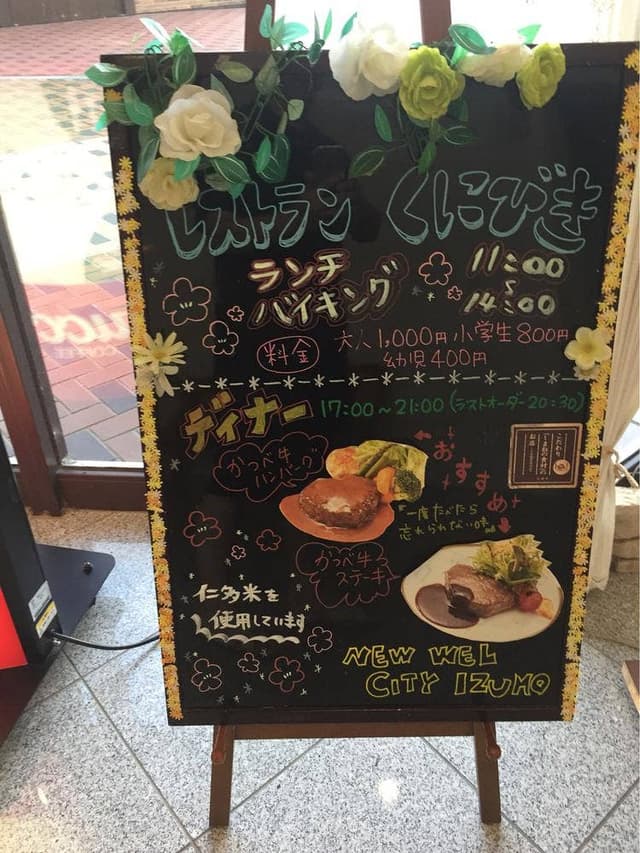 レストラン くにびき
ランチ
バイキング
11:00
~
14:00
料金
大人1,000円 小学生800円
幼児400円
ディナー 17:00~21:00(ラストオーダー20:30)
かつべ牛
ハンバーグ
おすすめ
"一度たべたら
忘れられない味"
かつべ牛の
ステーキ
仁多米を
使用しています
NEW WEL
CITY IZUMO
COFFEE